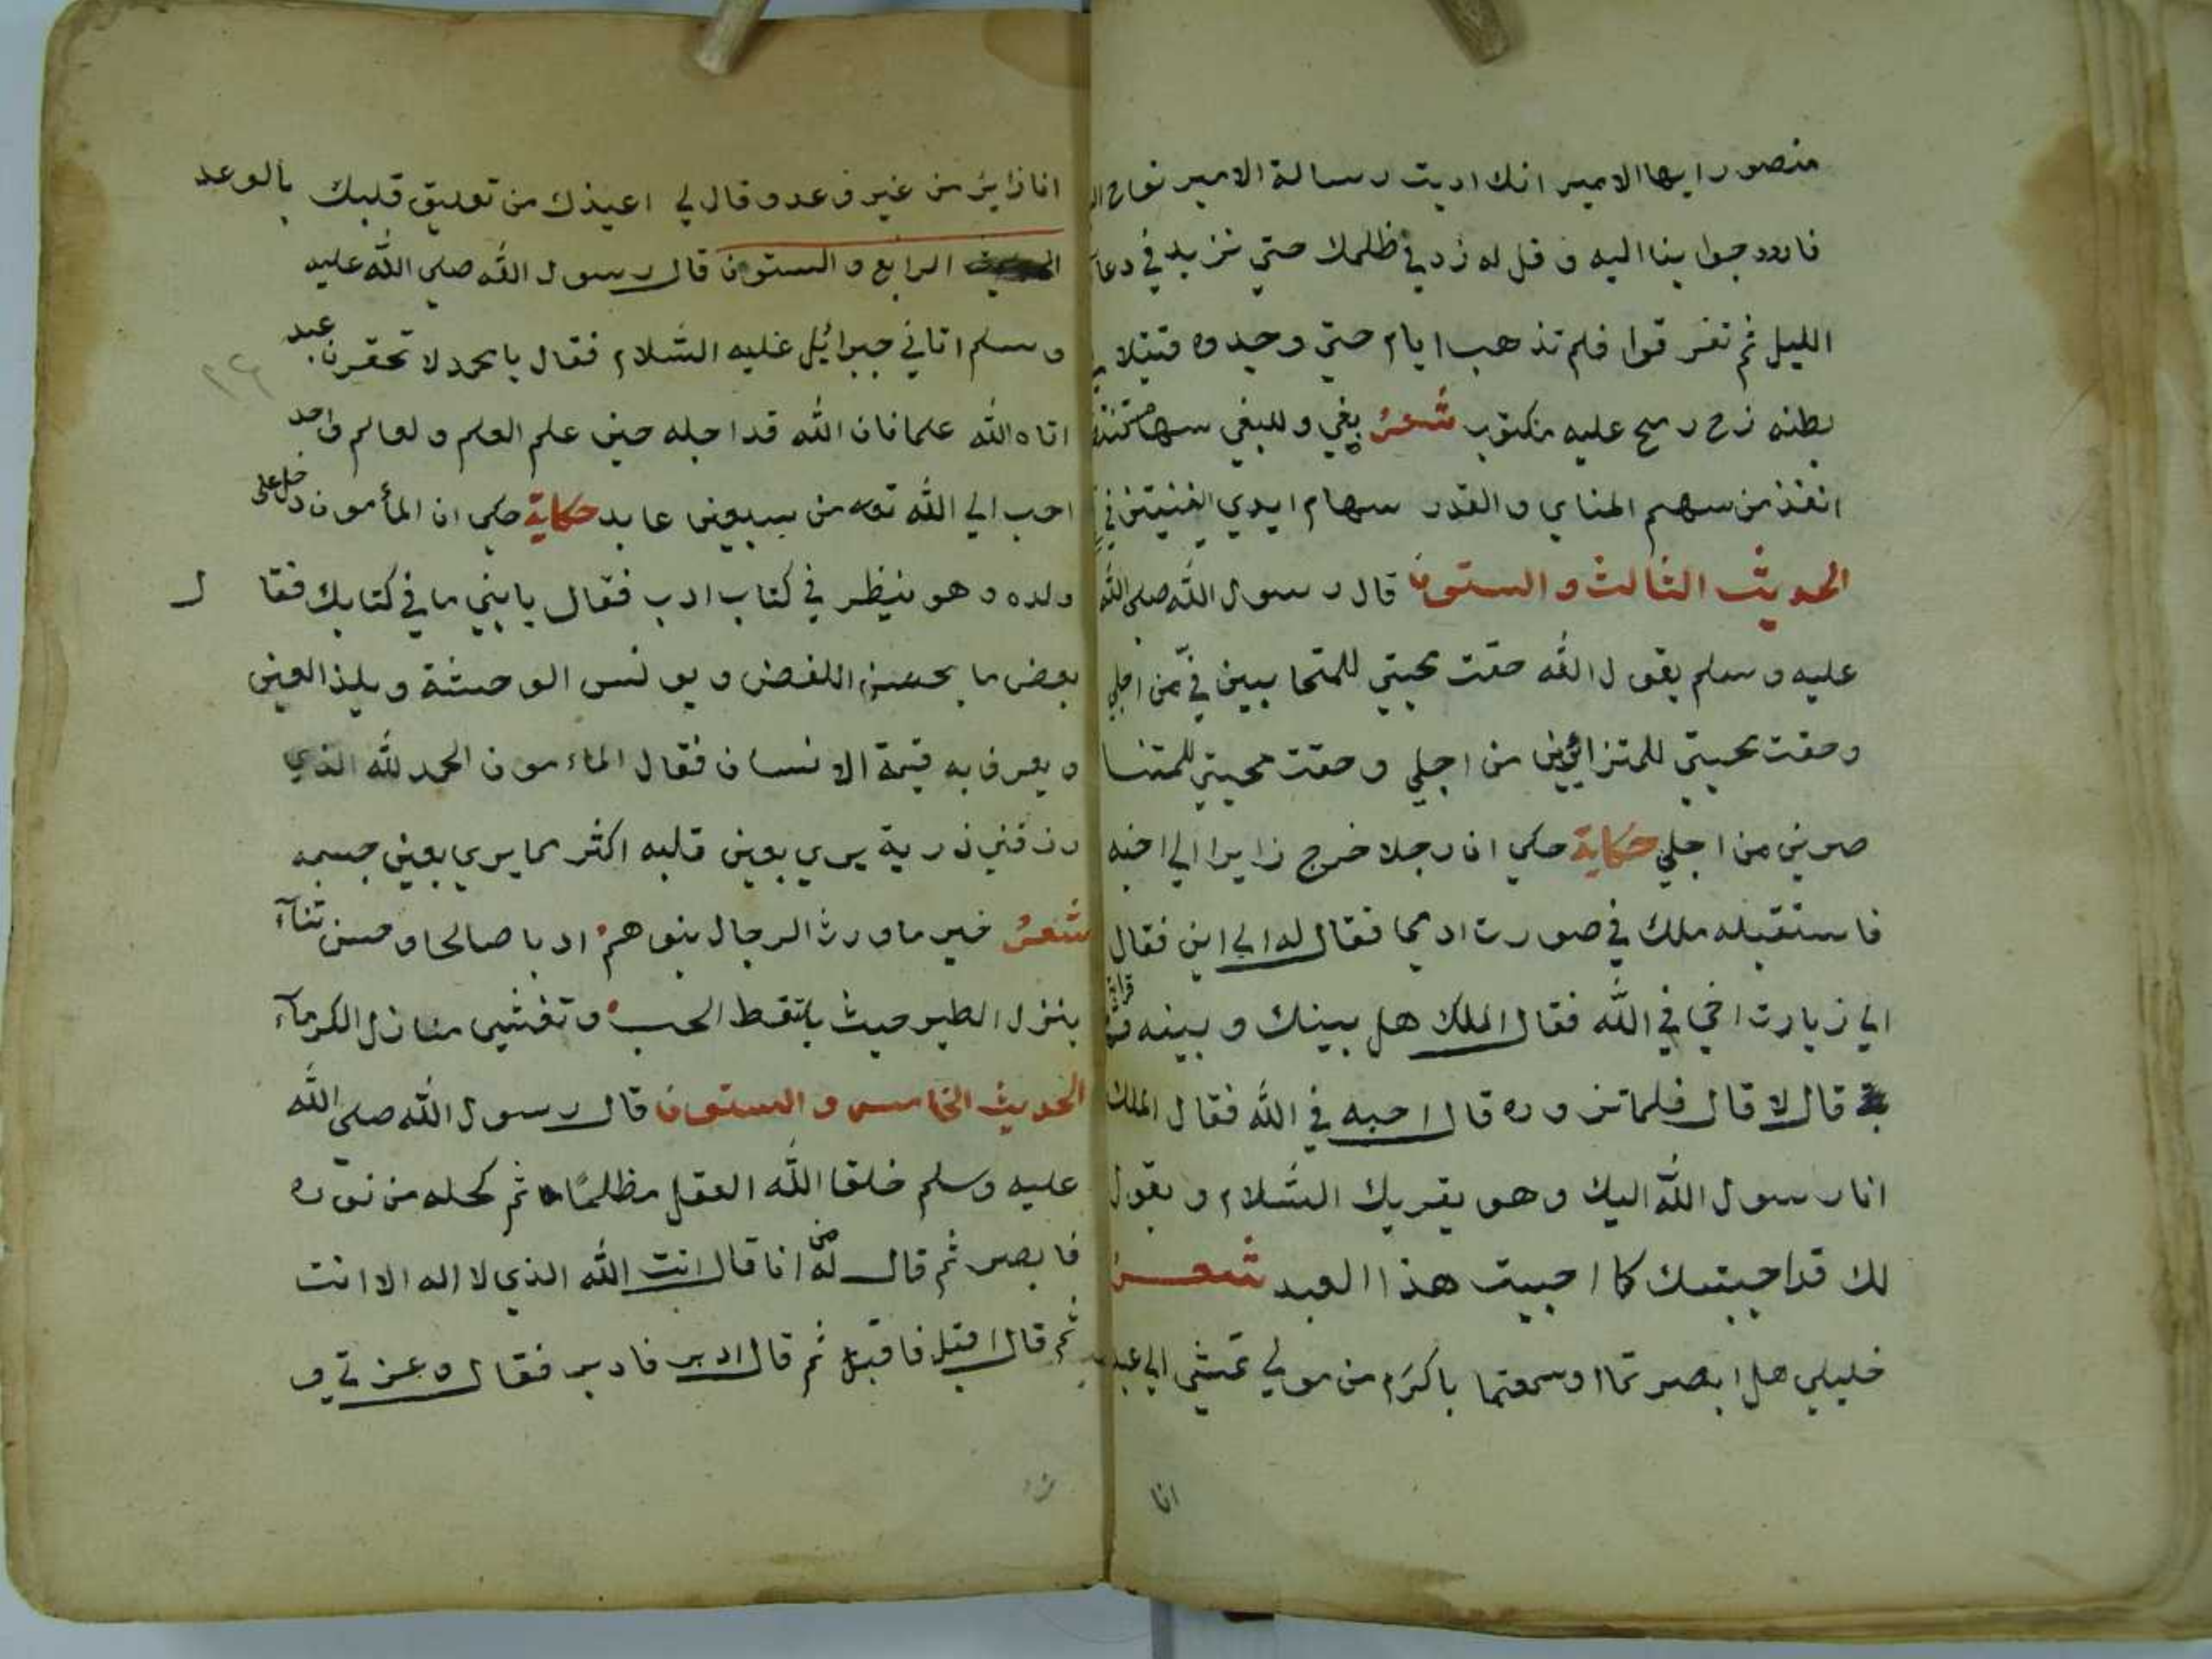 منصور ايها الامير انك اديت رسالة الامير نوح
فاردد جوابنا اليه و قل له زد في ظلمك حتي نزيد في دعآ
الليل ثم تفرقوا فلم تذهب ايام حتي وجدوه قتيلا
بطنه زح رمح عليه مكتوب شعر بغي و للبغي سهام
انفذ من سهم المنايا و القدر سهام ايدي في
الحديث الثالث و الستون قال رسول الله صلي الله
عليه و سلم يقول الله حقت محبتي للمتحابين في من اجلي
وحقت محبتي للمتزائرين من اجلي و حقت محبتي للمتنا
صرين من اجلي حكاية حكي ان رجلا خرج زايرا الي اخيه
فاستقبله ملك في صورت ادمي فقال له الي اين فقال
الي زيارت اخي في الله فقال الملك هل بينك و بينه قرا
بة قال لا قال فلما تزوره قال احبه في الله فقال الملك
انا رسول الله اليك وهو يقريك السلام و يقول
لك قد احببتك كما احببت هذا العبد شعر
خليلي هل ابصرتما او سمعتما باكرم من مولي تمشي الي عبد
انا
انا زاير من غير وعد و قال لي اعيذك من تعليق قلبك بالوعد
الحديث الرابع و الستون قال رسول الله صلي الله عليه
و سلم اتاني جبرائيل عليه السلام فقال يا محمد لا تحقرن عبد
اتاه الله علما فان الله قد اجله حين علم العلم و لعالم واحد
احب الي الله تعه من سبعين عابد حكاية حكي ان المأمون دخل علي
ولده و هو ينظر في كتاب ادب فقال يا بني ما في كتابك فقا ل
بعض ما يحسن اللفض و يونس الوحشة و يلذ العين
و يعرف به قيمة الانسان فقال الماءمون الحمد لله الذي
رزقني ذرية يري بعين قلبه اكثر مما يري بعين جسمه
شعر خير ما ورث الرجال بنوهم ادبا صالحا و حسن ثنآء
ينزل الطير حيث يلتقط الحب و تغشي منازل الكرمآء
الحديث الخامس و الستون قال رسول الله صلي الله
عليه وسلم خلقا الله العقل مظلمًا ثم كحله من نوره
فابصر ثم قال له من انا قال انت الله الذي لا اله الا انت
ثم قال اقبل فاقبل ثم قال ادبر فادبر فقال وعزتي و